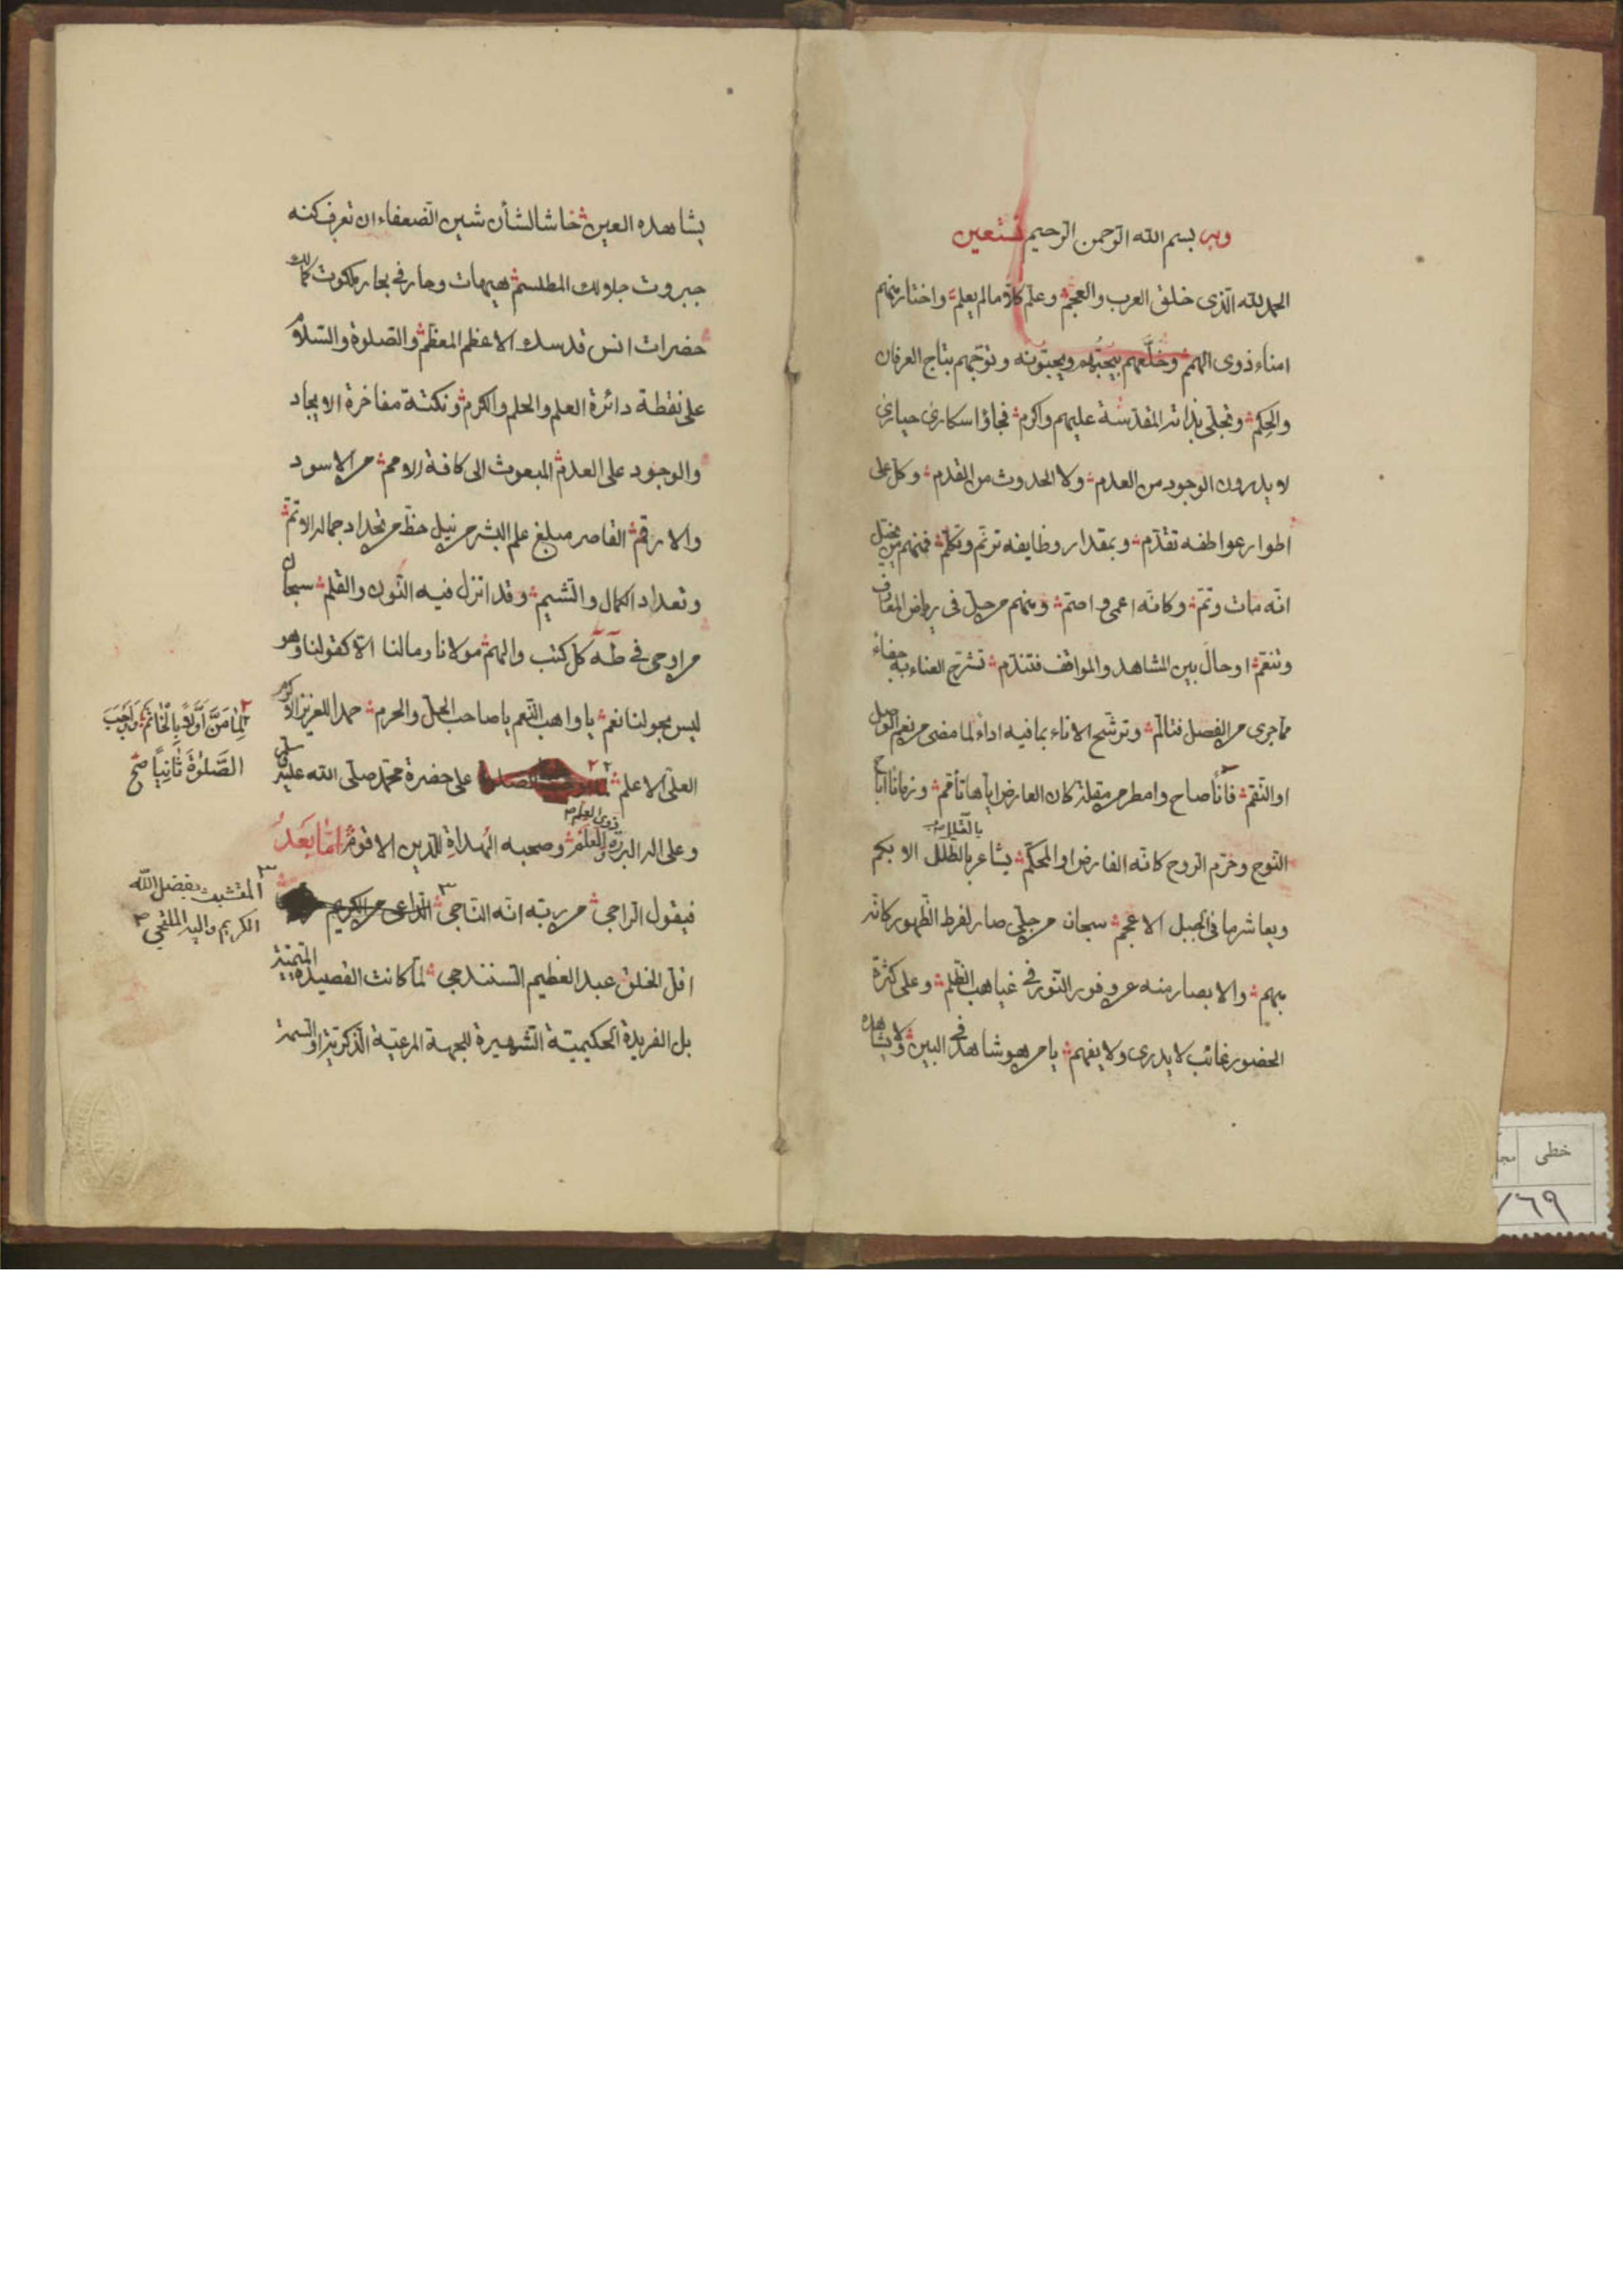 وبه بسم الله الرحمن الرحيم نستعين
الحمد لله الذى خلق العرب والعجم وعلم كلا ما لم يعلم واختار منهم
امناء ذوى الهمم وخلعهم بيحبهم ويحبونه وتوجهم بتاج العرفان
والحكم وتجلى بذاته المقدسة عليهم واكرم فجاؤا سكارى حيارى
لا يدرون الوجود من العدم ولا الحدوث من القدم وكل على
اطوار عواطفه تقدم وبمقدار وظايفه ترنم وتكلم فمنهم من يخيل
انه مات وتم وكانه اعمى واصم ومنهم من حل فى رياض المعارف
وتنعم او حال بين المشاهد والمواقف فتندم تشرح العناء به جفاء
مما جرى من الفصل فتالم وترشح الاناء بما فيه اداء لما مضى من نعم الوصل
او النقم فآنا صاح وامطر من مقلة كان العارض اياها تأقم وزمانا اباح
النوح وخرم الروح كانه الفارض او المحكم يشاعر بالطلل الابكم
بالقلل
ويعاشر ما فى الجبل الاعجم سبحان من جلى صار لفرط الظهور كانه
مبهم والابصار منه عن وفور النور فى غياهب الظلم وعلى كثرة
الحضور غائب لا يدرى ولا يفهم يا من هو شاهد فى البين ولا يشاهده
يشاهده العين حاشا لشأن شين الضعفاء ان تعرف كنه
جبروت جلالك المطلسم هيهات وحار فى بحار ملكوت كمالك
حضرات انس قدسك الاعظم المعظم والصلوة والسلام
على نقطة دائرة العلم والحلم والكرم ونكتة مفاخرة الايجاد
والوجود على العدم المبعوث الى كافة الامم من الاسود
والارقم القاصر مبلغ علم البشر من نيل حظ من تحداد جماله الاتم
وتعداد الكمال والشيم وقد انزل فيه النون والقلم سبحان
من اوحى فى طه كل كتب والهم مولانا وما لنا الا كقولنا وهو
ليس بحولنا نعم يا واهب النعم يا صاحب الحل والحرم حمدا للعزيز الاكرم
العلى الاعلم على حضرة محمد صلى الله عليه وسلم
لما من اولا بالخاتم واجب
الصلوة ثانيا صح
وعلى اله البررة ذوى العلم وصحبه الهداة للدين الاقوم اما بعد
فيقول الراجى من ربه انه الناجى الداعى من الكريم
المتشبث بفضل الله
الكريم واليه الملتجى
اقل الخلق عبد العظيم السنندجى لما كانت القصيدة المتمنية
بل الفريدة الحكيمية الشهيرة للجهة المرعية الذكرية او السمة
خطى
٧٦٩